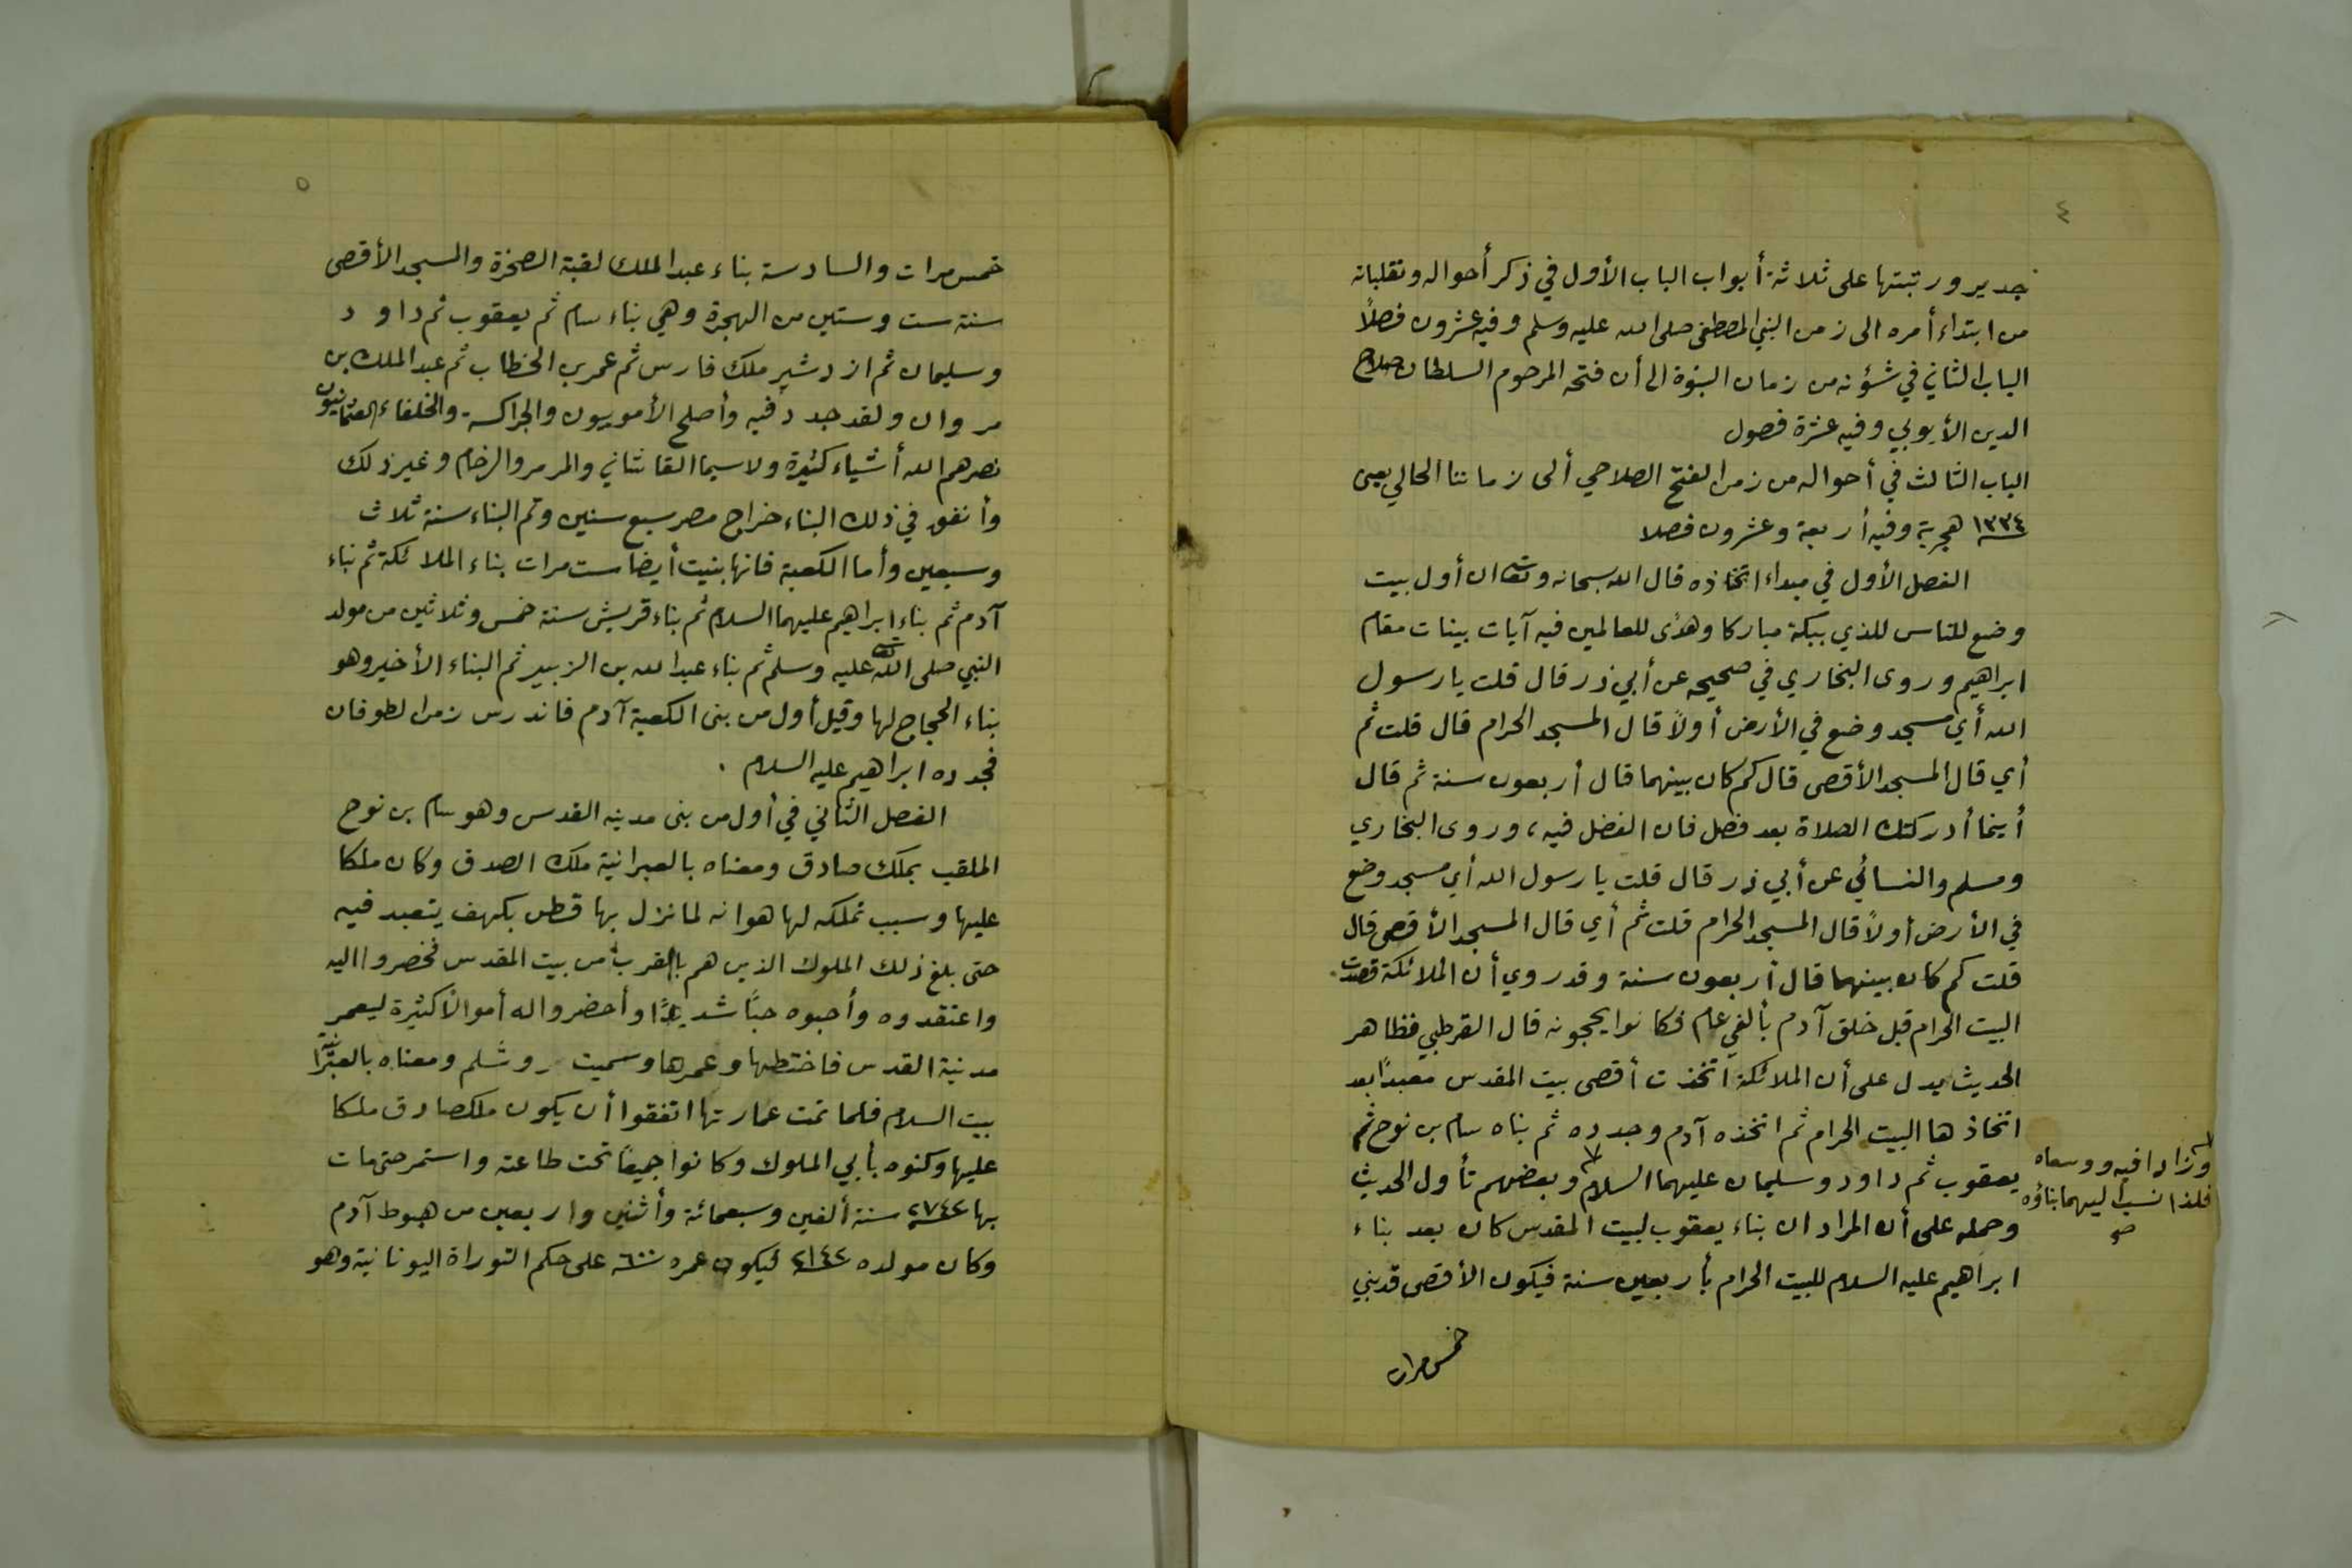 ٤
جدير ورتبتها على ثلاثة أبواب الباب الأول في ذكر أحواله وتقلباته
من ابتداء أمره الى زمن النبي المصطفى صلى الله عليه وسلم وفيه عشرون فصلاً
الباب الثاني في شؤنه من زمان النبوة الى أن فتحه المرحوم السلطان صلاح
الدين الأيوبي وفيه عشرة فصول
الباب الثالث في أحواله من زمن الفتح الصلاحي ألى زماننا الحالي يعنى
١٣٣٤ هجرية وفيه أربعة وعشرون فصلا
الفصل الأول في مبداء اتخاذه قال الله سبحانه وتعا ان أول بيت
وضع للناس للذي ببكة مباركا وهدًى للعالمين فيه آيات بينات مقام
ابراهيم وروى البخاري في صحيحه عن أبي ذر قال قلت يا رسول
الله أي مسجد وضع في الأرض أولاً قال المسجد الحرام قال قلت ثم
أي قال المسجد الأقصى قال كم كان بينهما قال أربعون سنة ثم قال
أينما أدركتك الصلاة بعد فصل فان الفضل فيه، وروى البخاري
ومسلم والنسائي عن أبي ذر قال قلت يا رسول الله أي مسجد وضع
في الأرض أولاً قال المسجد الحرام قلت ثم أي قال المسجد الأقصى قال
قلت كم كان بينهما قال أربعون سنة وقد روي أن الملائكة
البيت الحرام قبل خلق آدم بألفي عام فكانوا يحجونه قال القرطبي فظاهر
الحديث يدل على أن الملائكة اتخذت أقصى بيت المقدس معبدًا بعد
اتخاذها البيت الحرام ثم اتخذه آدم وجدده ثم بناه سام بن نوح ثم
يعقوب ثم داود وسليمان عليهما السلام وبعضهم تأول الحديث
وزادا فيه ووسعاه
فلذا نسب اليهما بناؤه
صح
وحمله على أن المراد ان بناء يعقوب لبيت المقدس كان بعد بناء
ابراهيم عليه السلام للبيت الحرام بأربعين سنة فيكون الأقصى قد بني
خمس مرات
٥
خمس مرات والسادسة بناء عبد الملك لقبة الصخرة والمسجد الأقصى
سنة ست وستين من الهجرة وهي بناء سام ثم يعقوب ثم داود
وسليمان ثم ازدشير ملك فارس ثم عمر بن الخطاب ثم عبد الملك بن
مروان ولقد جدد فيه وأصلح الأمويون والجراكسة والخلفاء العثمانيون
نصرهم الله أشياء كثيرة ولاسيما القاشاني والمرمر والرخام وغير ذلك
وأنفق في ذلك البناء خراج مصر سبع سنين وتم البناء سنة ثلاث
وسبعين وأما الكعبة فانها بنيت أيضا ست مرات بناء الملائكة ثم بناء
آدم ثم بناء ابراهيم عليهما السلام ثم بناء قريش سنة خمس وثلاثين من مولد
النبي صلى الله تعا عليه وسلم ثم بناء عبد الله بن الزبير ثم البناء الأخير وهو
بناء الحجاج لها وقيل أول من بنى الكعبة آدم فاندرس زمن الطوفان
فجدده ابراهيم عليه السلام .
الفصل الثاني في أول من بنى مدينه القدس وهو سام بن نوح
الملقب بملك صادق ومعناه بالعبرانية ملك الصدق وكان ملكا
عليها وسبب تملكه لها هو انه لما نزل بها قطن بكهف يتعبد فيه
حتى بلغ ذلك الملوك الذين هم بالقرب من بيت المقدس فحضروا اليه
واعتقدوه وأحبوه حبًا شديدًا وأحضروا له أموالًا كثيرة ليعمر
مدينة القدس فاختطها وعمرها وسميت روشلم ومعناه بالعبرانية
بيت السلام فلما تمت عمارتها اتفقوا أن يكون ملكصادق ملكا
عليها وكنوه بأبي الملوك وكانوا جميعًا تحت طاعته واستمر حتى مات
بها ٢٧٤٢ سنة ألفين وسبعمائة وأثنين واربعين من هبوط آدم
وكان مولده ٢١٤٢ ليكون عمره ٦٠٠ على حكم التوراة اليونانية وهو